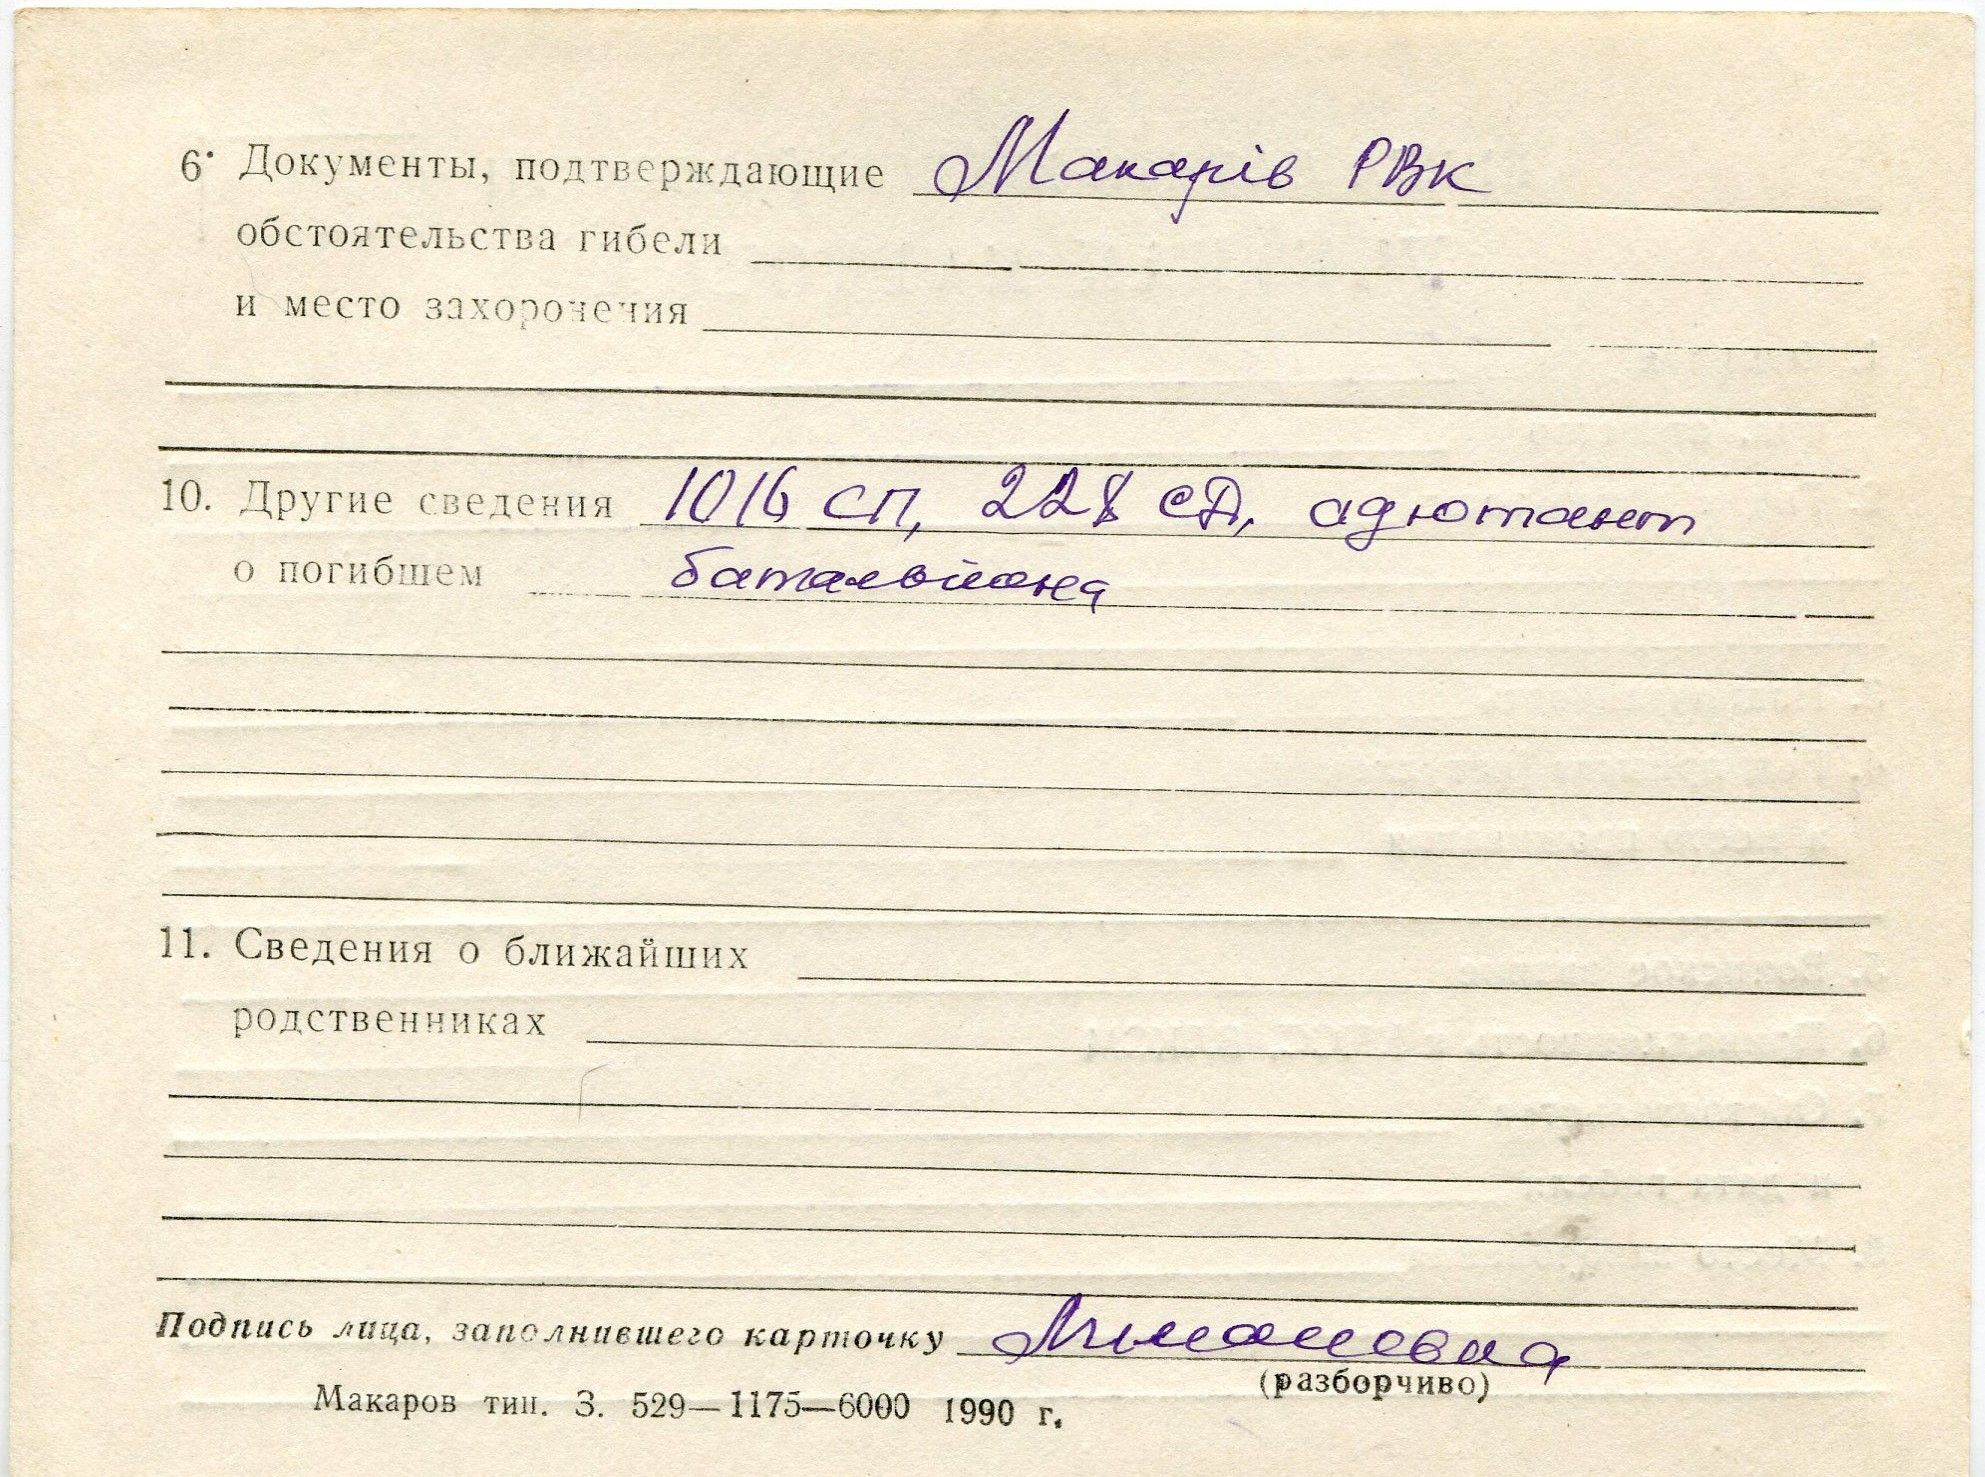 6. Документы, подтверждающие Макарів РВК
обстоятельства гибели
и место захоронения
10. Другие сведения 1016 сп, 228 сд, адютант
о погибшем батальйона
11. Сведения о ближайших
родственниках
Подпись лица, заполнившего карточку
(разборчиво)
Макаров тип. З. 529—1175—6000 1990 г.